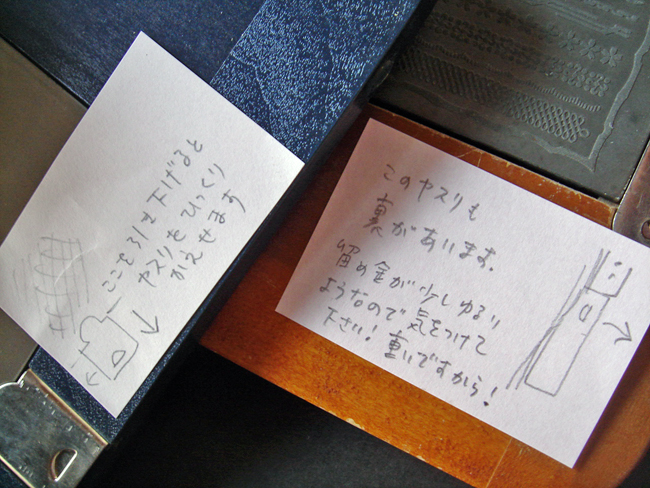 ここを引き下げると
ヤスリをひっくり
かえせます
このヤスリも
裏があります。
留め金が少しゆるい
ようなので気をつけて
下さい!重いですから!